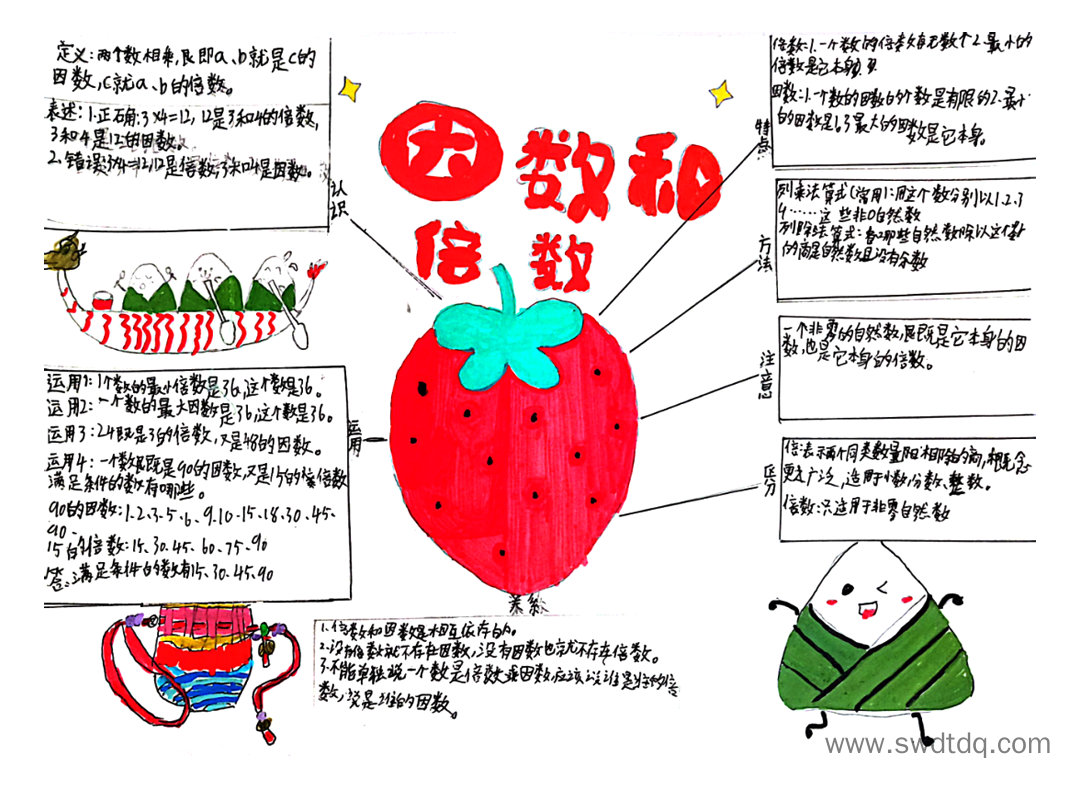 因数和
倍数
认识
定义:两个数相乘,即a、b就是c的
因数,c就a、b的倍数。
表述:1.正确:3×4=12,12是3和4的倍数,
3和4是12的因数。
2.错误:3×4=12,12是倍数,3和4是因数。
特点
倍数:1.一个数的倍数有无数个2.最小的
倍数是它本身
因数:1.一个数的因数的个数是有限的2.最小
的因数是1,3最大的因数是它本身。
方法
列乘法算式(常用):用这个数分别以1.2.3
4……这些非0自然数
列除法算式:看哪些自然数除以这个数
的商是自然数且没有分数
注意
一个非零的自然数,既是它本身的因
数,也是它本身的倍数。
区分
倍:表示两个同类数量相除的商,概念
更广泛,适用于小数、分数、整数。
倍数:只适用于非零自然数
运用
运用1:1个数的最小倍数是36,这个数是36。
运用2:一个数的最大因数是36,这个数是36。
运用3:24既是3的倍数,又是48的因数。
运用4:一个数既是90的因数,又是15的倍数
满足条件的数有哪些。
90的因数:1.2.3.5.6.9.10.15.18.30.45.
90.
15的倍数:15、30.45、60、75、90
答:满足条件的数有15、30、45、90
关系
1.倍数和因数是相互依存的。
2.没有倍数就不存在因数,没有因数也就不存在倍数。
3.不能单独说一个数是倍数或因数,应该说谁是谁的倍
数,谁是谁的因数。
www.swdtdq.com